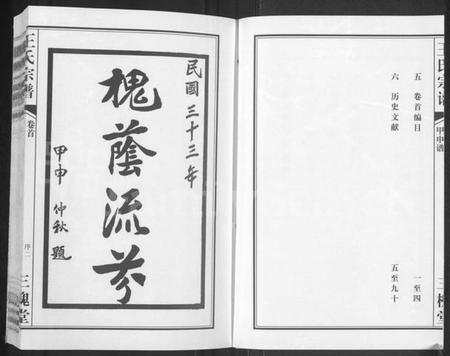 王氏宗譜
甲申譜
五 卷首編目 一至四
六 历史文献 五至九十
三槐堂
民國三十三年
槐蔭流芬
甲申 仲秋 題
王氏宗譜
卷首
序二
三槐堂